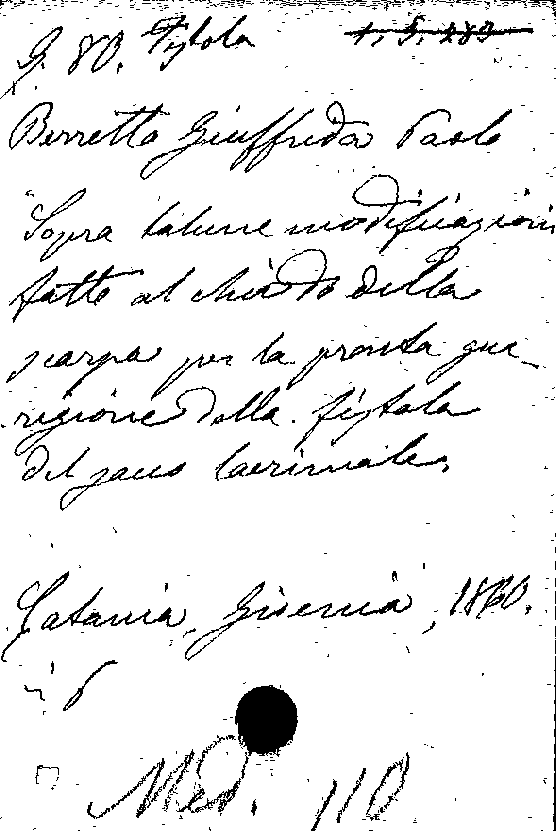 G. 80. Fistola 1. 5. 283
Berretta Giuffrida Paolo
"Sopra talune modificazioni
fatte al chiodo della
scarpa per la pronta gua-
rigione della fistola
del sacco lacrimale.
Catania, 1860.
in 8
Med. 110